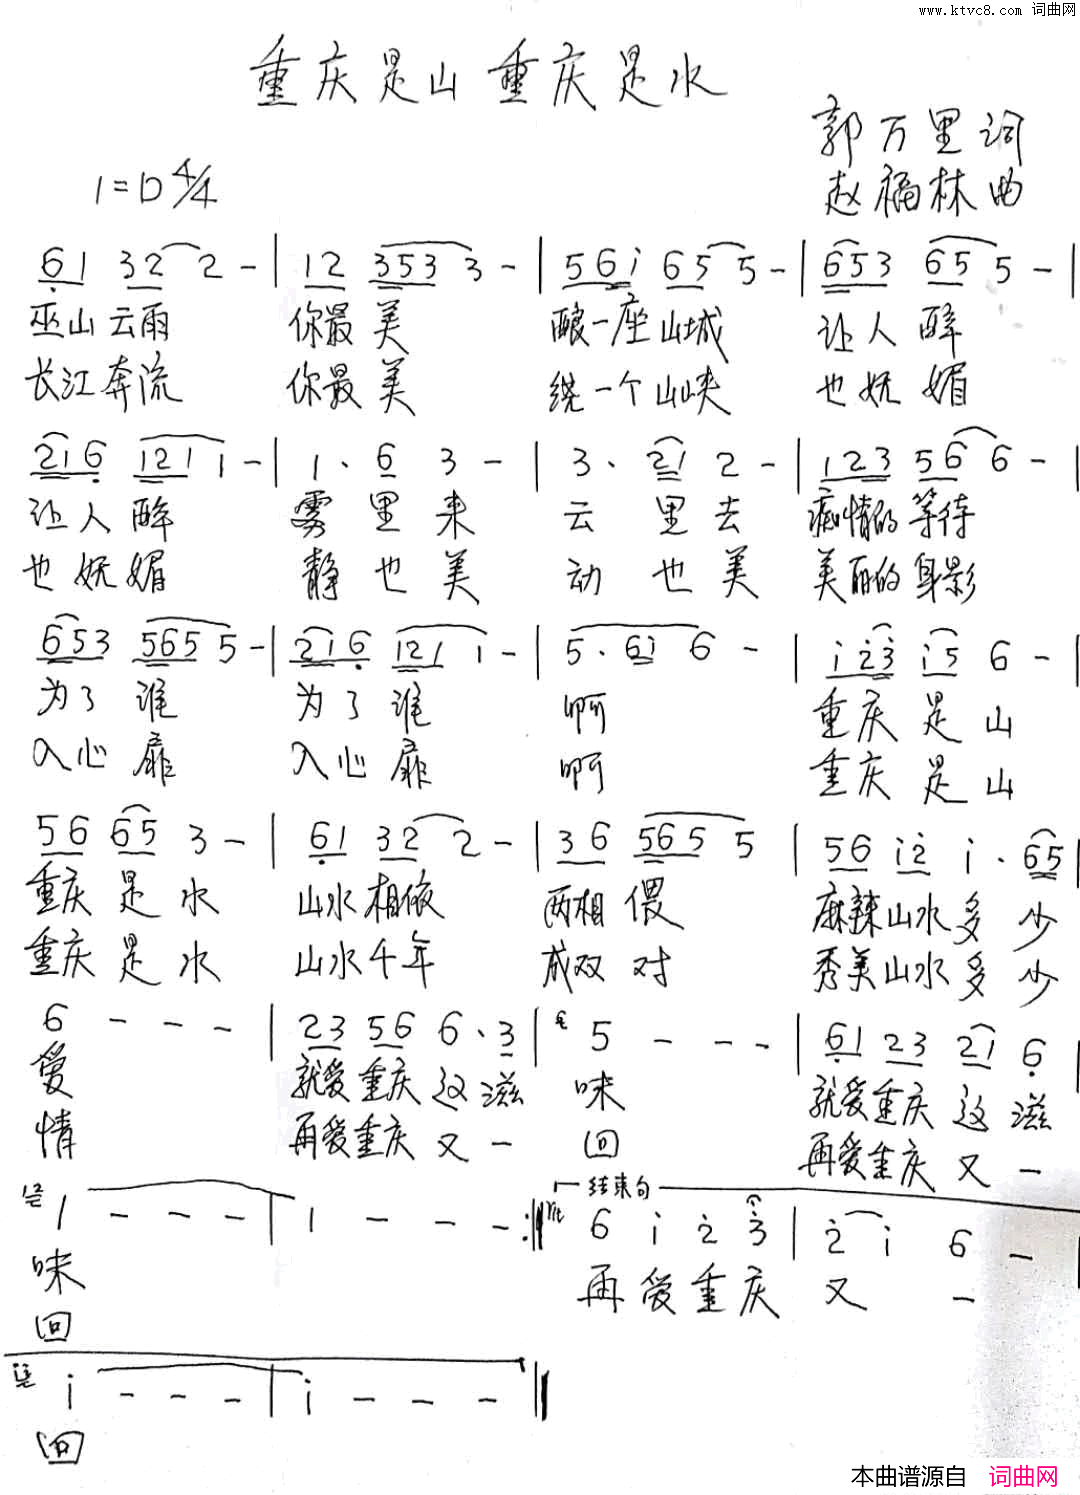 www.ktvc8.com 词曲网
重庆是山 重庆是水
郭万里词
1=D 4/4
赵福林曲
6 1 3 2 2 - | 1 2 3 5 3 3 - | 5 6 i 6 5 5 - | 6 5 3 6 5 5 - |
巫山云雨 你最美 酿一座山城 让人醉
长江奔流 你最美 绕一个山峡 也妩媚
2 1 6 1 2 1 1 - | 1 · 6 3 - | 3 · 2 1 2 - | 1 2 3 5 6 6 - |
让人醉 雾里来 云里去 痴情的等待
也妩媚 静也美 动也美 美丽的身影
6 5 3 5 6 5 5 - | 2 1 6 1 2 1 1 - | 5 · 6 i 6 - | i 2 3 i 5 6 - |
为了谁 为了谁 啊 重庆是山
入心扉 入心扉 啊 重庆是山
5 6 6 5 3 - | 6 1 3 2 2 - | 3 6 5 6 5 5 | 5 6 i 2 i · 6 5
重庆是水 山水相依 两相偎 麻辣山水多少
重庆是水 山水千年 成双对 秀美山水多少
6 - - - | 2 3 5 6 6 · 3 | 6 5 - - - | 6 1 2 3 2 1 6 |
爱 就爱重庆这滋 味 就爱重庆这滋
情 再爱重庆又一 回 再爱重庆又一
结束句
12 1 - - - | 1 - - - :|| rit 6 i 2 3 | 2 i 6 - |
味 再爱重庆 又一
回
i - - - | i - - - ||
回
本曲谱源自 词曲网